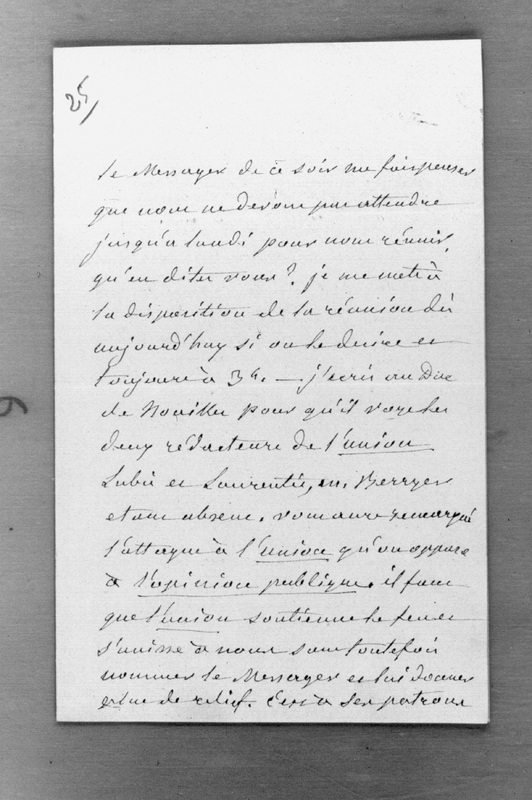 25
le Messager de ce soir me fais penser
que nous ne devons pas attendre
jusqu'a lundi pour nous réunir,
qu'en dites vous? je me mets à
la disposition de la réunion dès
aujourd'huy si on le desire et
toujours à 3h. — j'ecris au Duc
de Noailles pour qu'il voye les
deux rédacteurs de l'union
Lubis et Laurentie, M. Berryer
etant absent. vous aurez remarqué
l'attaque à l'union qu'on oppose
à l'opinion publique. il faut
que l'union soutienne le feu et
s'unisse à nous sans toutefois
nommer le Messager et lui donner
de relief. C'est à ses patrons